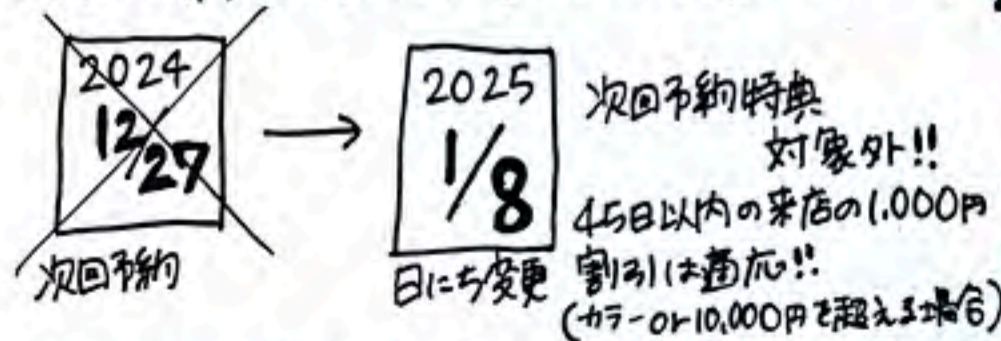 2024
12/27
次回予約
→
2025
1/8
日にち変更
次回予約特典
対象外!!
45日以内の来店の1,000円
割引は適応!!
(カラーor10,000円を超える場合)